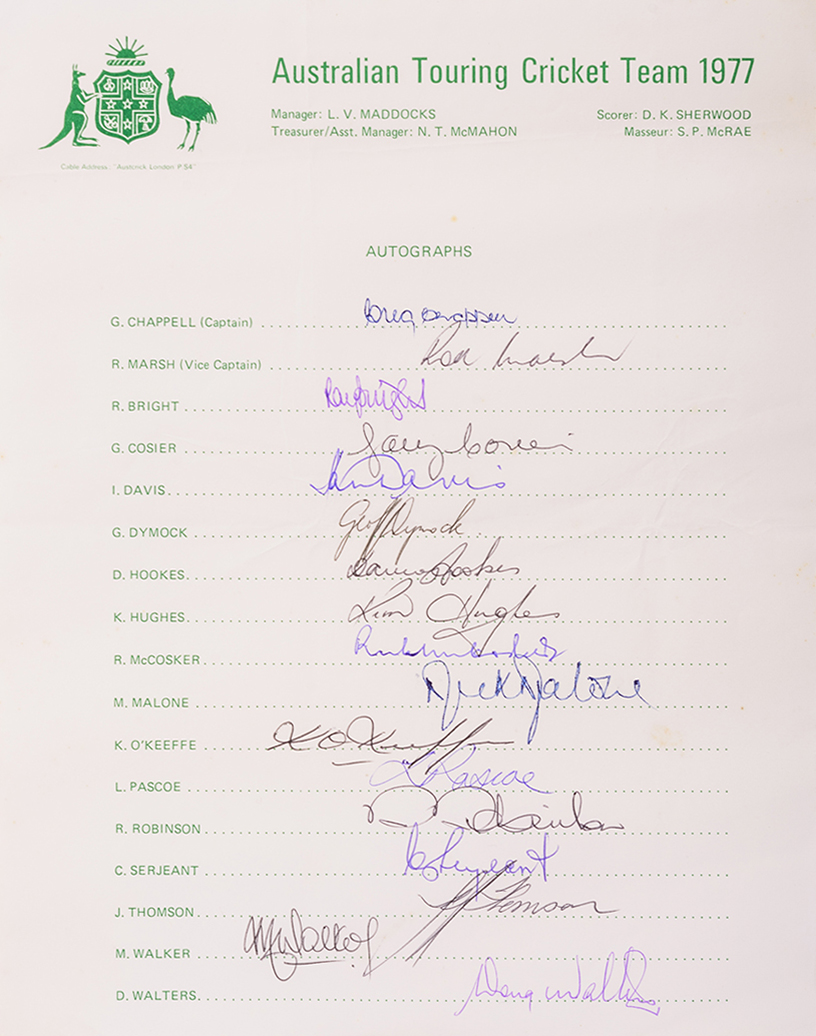 Australian Touring Cricket Team 1977
Manager: L. V. MADDOCKS Scorer: D. K. SHERWOOD
Treasurer/Asst. Manager: N. T. McMAHON Masseur: S. P. McRAE
Cable Address: "Austcrick London P S4"
AUTOGRAPHS
G. CHAPPELL (Captain) Greg Chappell
R. MARSH (Vice Captain) Rod Marsh
R. BRIGHT Ray Bright
G. COSIER Gary Cosier
I. DAVIS Ian Davis
G. DYMOCK Geoff Dymock
D. HOOKES David Hookes
K. HUGHES Kim Hughes
R. McCOSKER
M. MALONE Mick Malone
K. O'KEEFFE K O'Keeffe
L. PASCOE L Pascoe
R. ROBINSON
C. SERJEANT C Serjeant
J. THOMSON J Thomson
M. WALKER M Walker
D. WALTERS Doug Walters